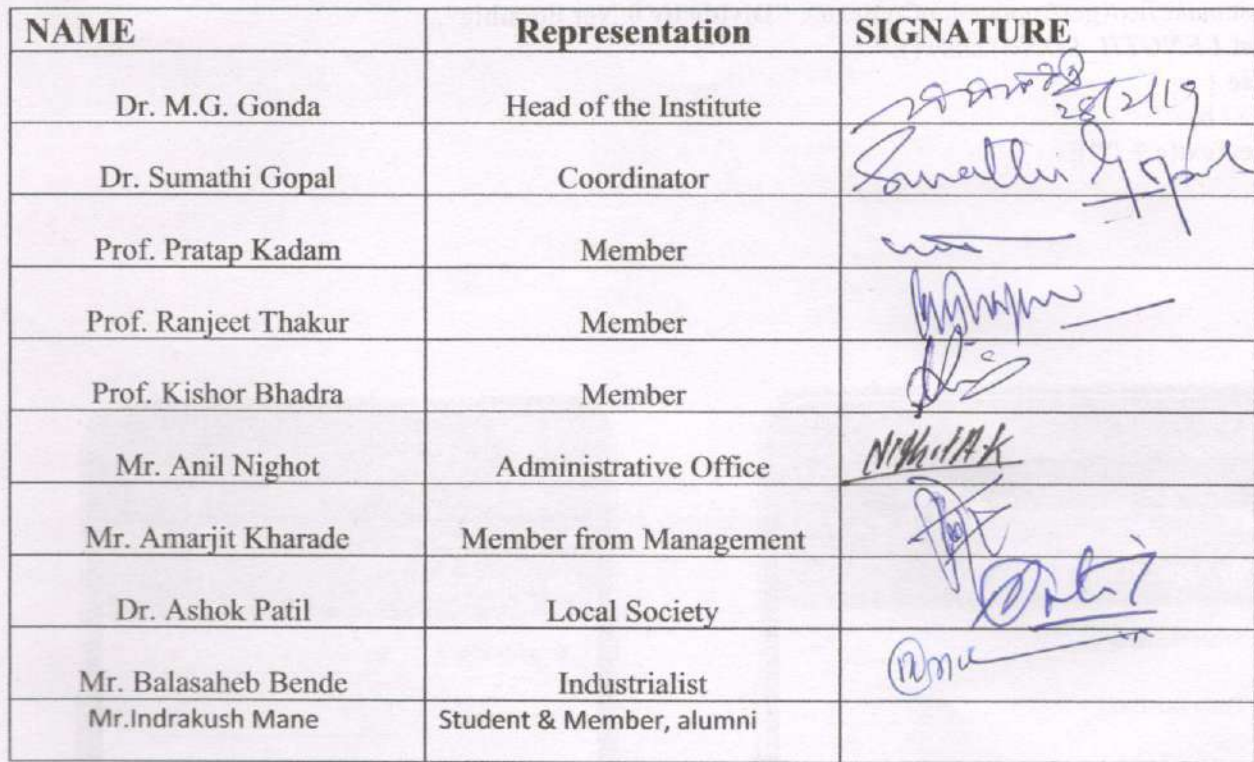 NAME Representation SIGNATURE
Dr. M.G. Gonda Head of the Institute 28/2/19
Dr. Sumathi Gopal Coordinator Sumathi Gopal
Prof. Pratap Kadam Member
Prof. Ranjeet Thakur Member
Prof. Kishor Bhadra Member
Mr. Anil Nighot Administrative Office Nighot A.K
Mr. Amarjit Kharade Member from Management
Dr. Ashok Patil Local Society
Mr. Balasaheb Bende Industrialist
Mr.Indrakush Mane Student & Member, alumni